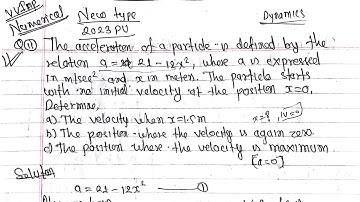 VVImp
Numerical
New type
2023 PU
Dynamics
Q 11 The acceleration of a particle is defined by the
relation a = 21 - 12x², where a is expressed
in m/sec² and x in meter. The particle starts
with no initial velocity at the position x=0.
Determine,
a) The velocity when x=1.5m
x=?, v=0
b) The position where the velocity is again zero
c) The position where the velocity is maximum
[a=0]
Solution
a = 21 - 12x² ——— ①